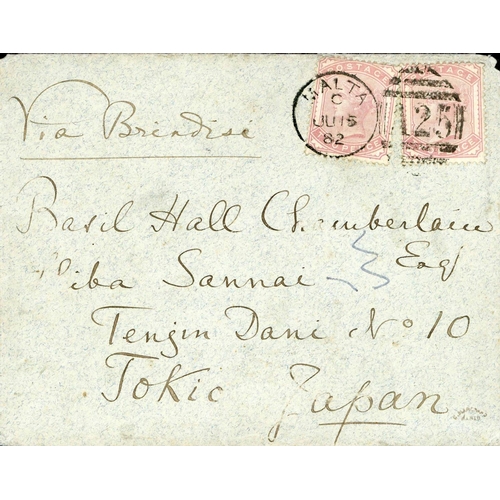 POSTAGE
POSTAGE
MALTA
C
JU 15
82
A25
Via Brindisi
Basil Hall Chamberlain
Esq
Siba Sannai
Tenjin Dani No 10
Tokio Japan